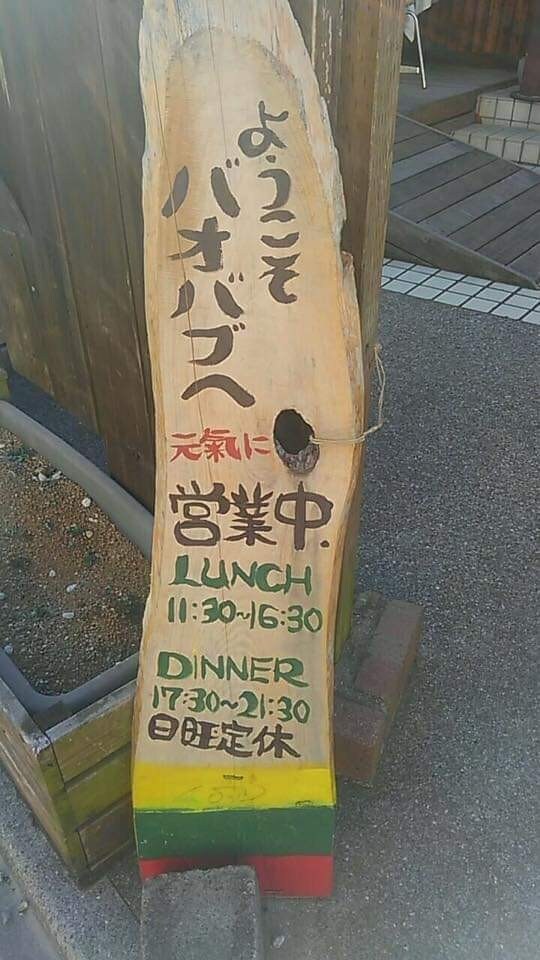 ようこそ
バオバブへ
元氣に
営業中.
LUNCH
11:30~16:30
DINNER
17:30~21:30
日旺定休